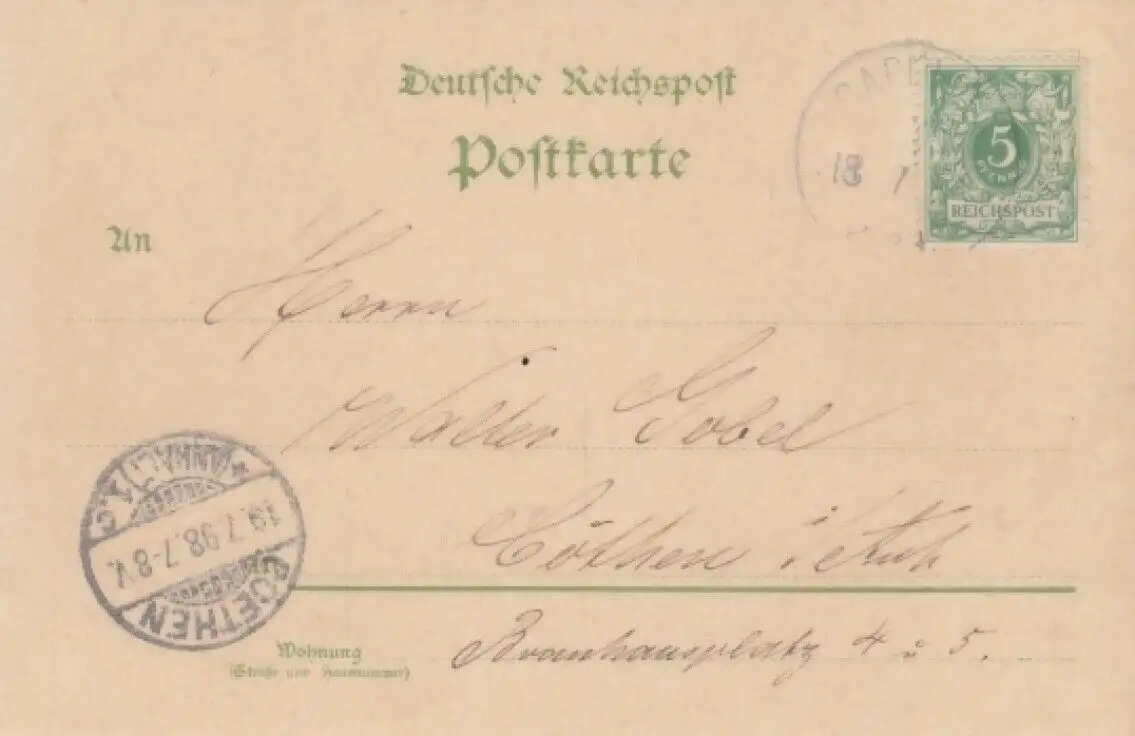 Deutsche Reichspost
Postkarte
5
PFENNIG
REICHSPOST
18 7
An
Herrn
Walter Gobel
Cöthen i Anh
COETHEN
19.7.98.7-8V.
*(ANHALT)*
Wohnung
(Straße und Hausnummer)
Brauhausplatz 4 u 5.